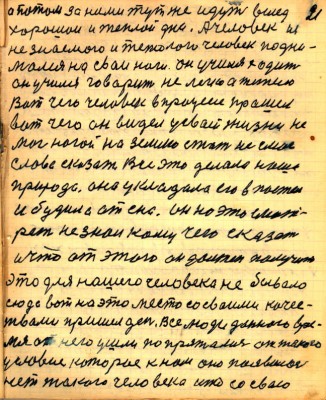 а потом за ними тут же идут вслед 21
хорошои и теплой дни. А человек из
не знаемого и тежолого человек подни-
мался на сваи наги. он учился ходит
он учился говорит не легко а тежело
Вот чего человек в прцесе прашел
вот чего он видел у свай жизни не
мог ногой на землю стат не смог
слова сказат Все это делала наша
природа, она укладала его в постел
и будила от сна. он на это смот-
рел не знал кому чего сказат
и что от этого он должен получит
это для нашего человека не бывало
сюда вот на это место со своими каче-
ствами пришел дел. Все люди данного вре-
мя от него ушли попрятались от такого
условие, которое к нам оно появилос
нет такого человека и что со сваю